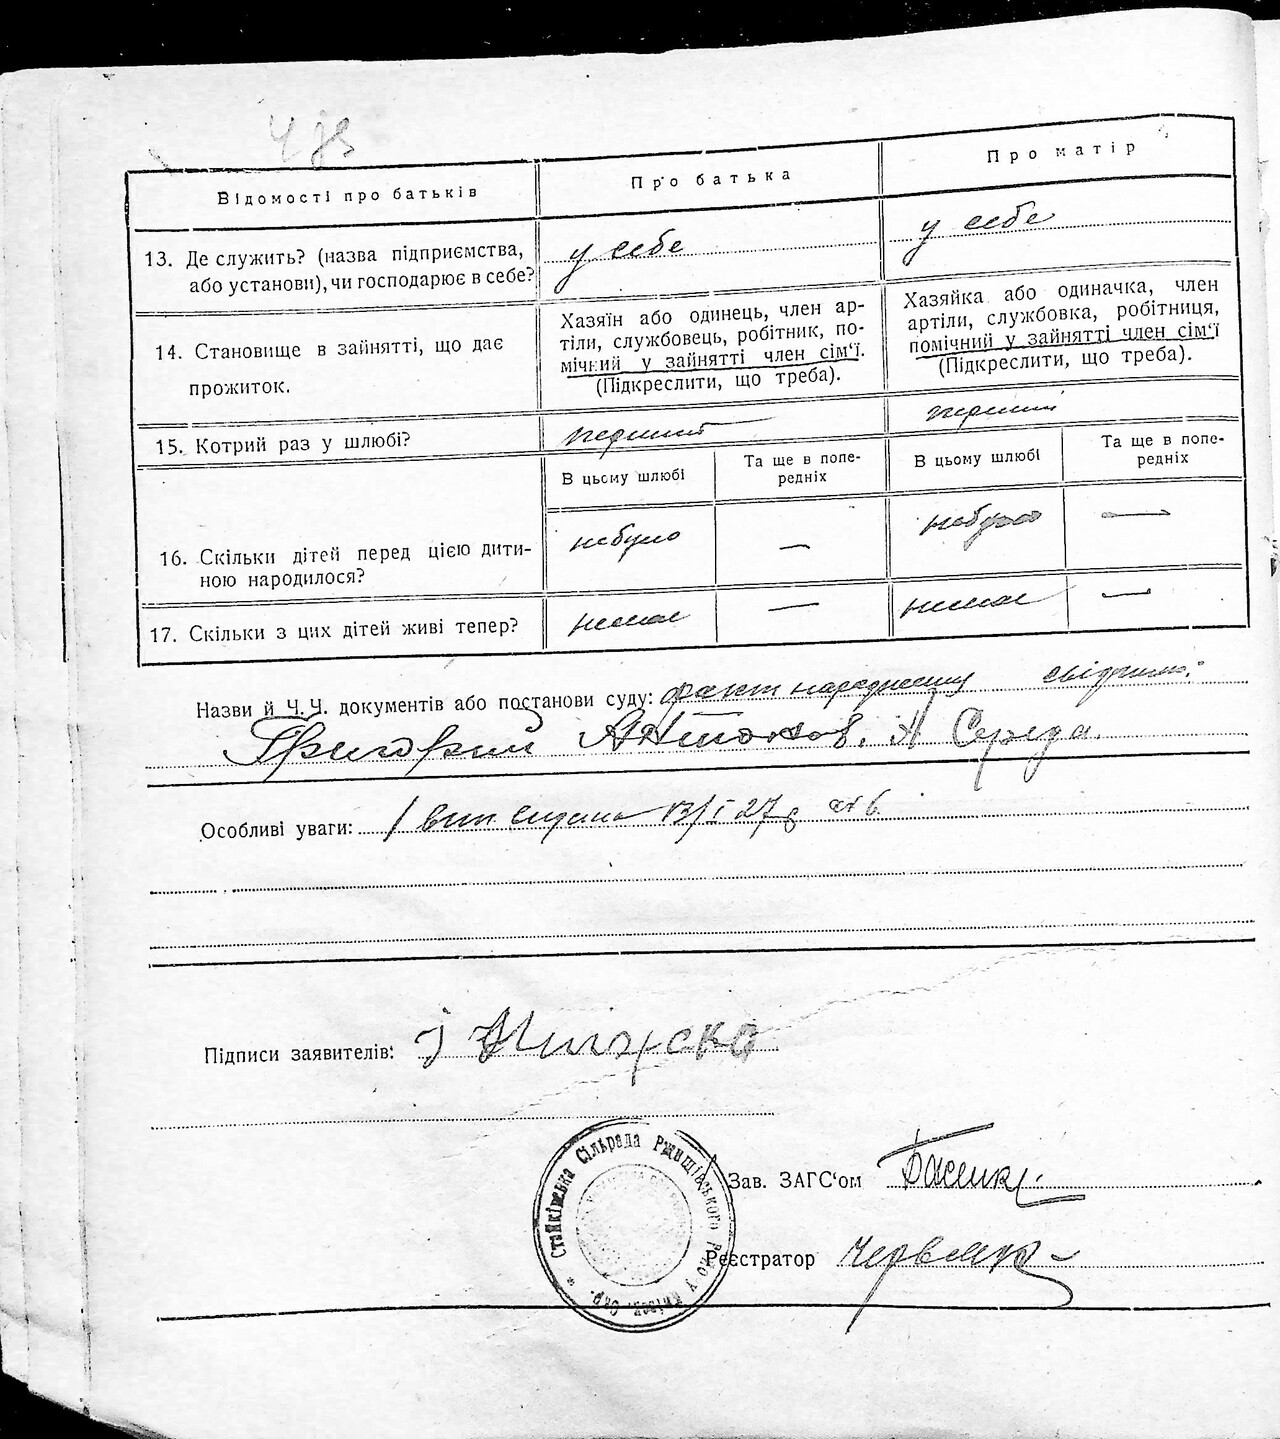 Відомості про батьків
Про батька
Про матір
13. Де служить? (назва підприємства, або установи), чи господарює в себе?
у себе
у себе
14. Становище в зайнятті, що дає прожиток.
Хазяїн або одинець, член ар-
тіли, службовець, робітник, по-
мічний у зайнятті член сім'ї.
(Підкреслити, що треба).
Хазяйка або одиначка, член
артіли, службовка, робітниця,
помічний у зайнятті член сім'ї
(Підкреслити, що треба).
15. Котрий раз у шлюбі?
перший
перший
В цьому шлюбі
Та ще в попе-
редніх
В цьому шлюбі
Та ще в попе-
редніх
16. Скільки дітей перед цією дити-
ною народилося?
небуло
—
небуло
—
17. Скільки з цих дітей живі тепер?
немає
—
немає
—
Назви й Ч.Ч. документів або постанови суду: факт народження свідчить:
Григорий А Середа.
Особливі уваги: 13/I 27
Підписи заявителів:
Зав. ЗАГС'ом
Реєстратор Червяк
Стайківська Сільрада Ржищівського Району Київськ. Окр. *